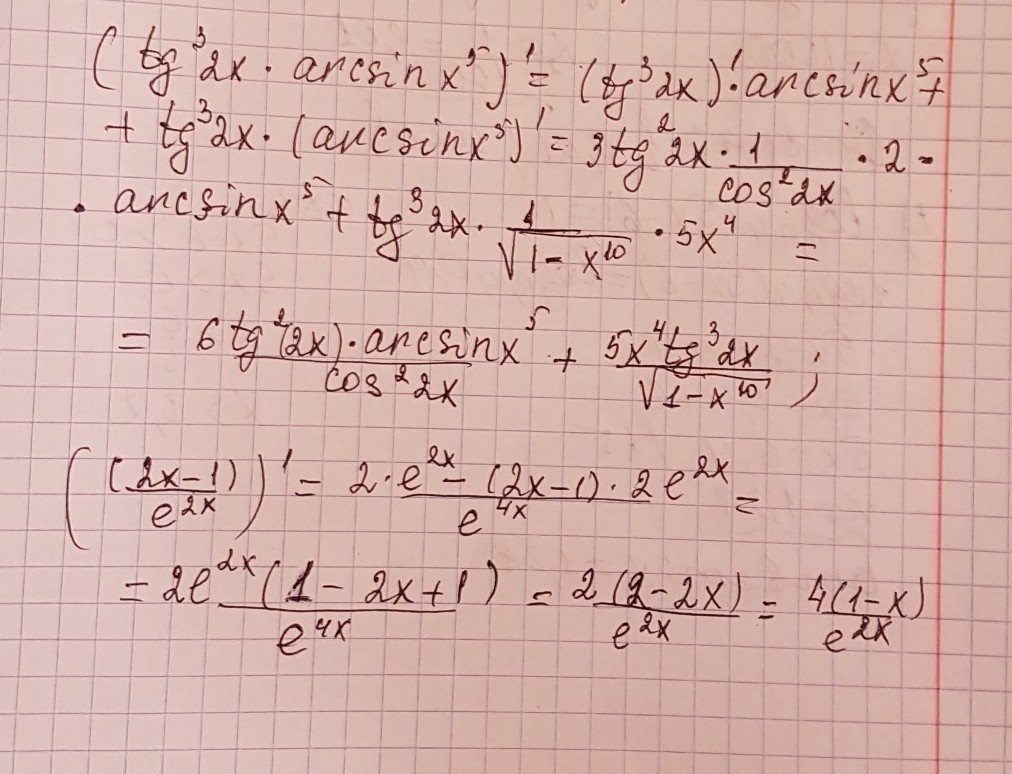 (tg³2x · arcsin x⁵)' = (tg³2x)' · arcsin x⁵ +
+ tg³2x · (arcsin x⁵)' = 3tg²2x · 1/cos²2x · 2 ·
· arcsin x⁵ + tg³2x · 1/√(1 - x¹⁰) · 5x⁴ =
= 6tg²(2x) · arcsin x⁵/cos²2x + 5x⁴tg³2x/√(1-x¹⁰) ;
((2x-1)/e²ˣ)' = (2·e²ˣ - (2x-1) · 2e²ˣ)/e⁴ˣ =
= 2e²ˣ(1 - 2x+1)/e⁴ˣ = 2(2-2x)/e²ˣ = 4(1-x)/e²ˣ